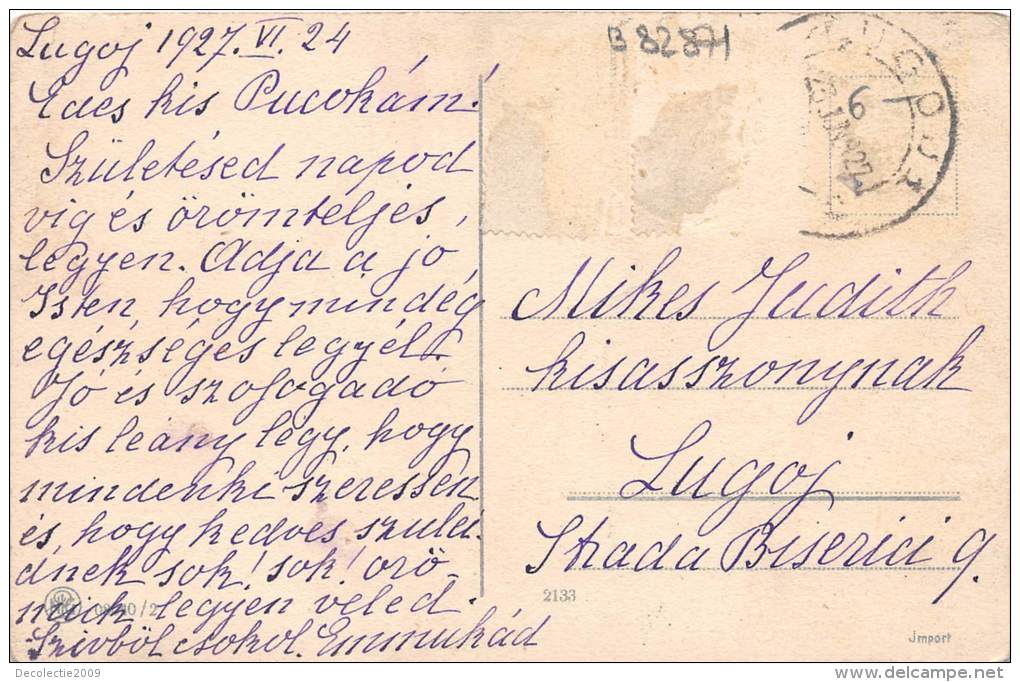 Lugoj 1927. VI. 24
B 82871
Edes kis Pucokám!
Születésed napod
vig és örömteljes,
legyen. Adja a jo
Isten, hogy mindég
egészséges legyél.
Jó és szofogadó
kis leány légy, hogy
mindenki szeressen
és hogy kedves szülei-
dnek sok! sok! örö-
mük legyen veled.
Szivböl csokol. Emmukád
LUGOJ
6
Mikes Judith
kisasszonynak
Lugoj
Strada Biserici 9.
2133
Jmport
Decolectie2009
www.delcampe.net